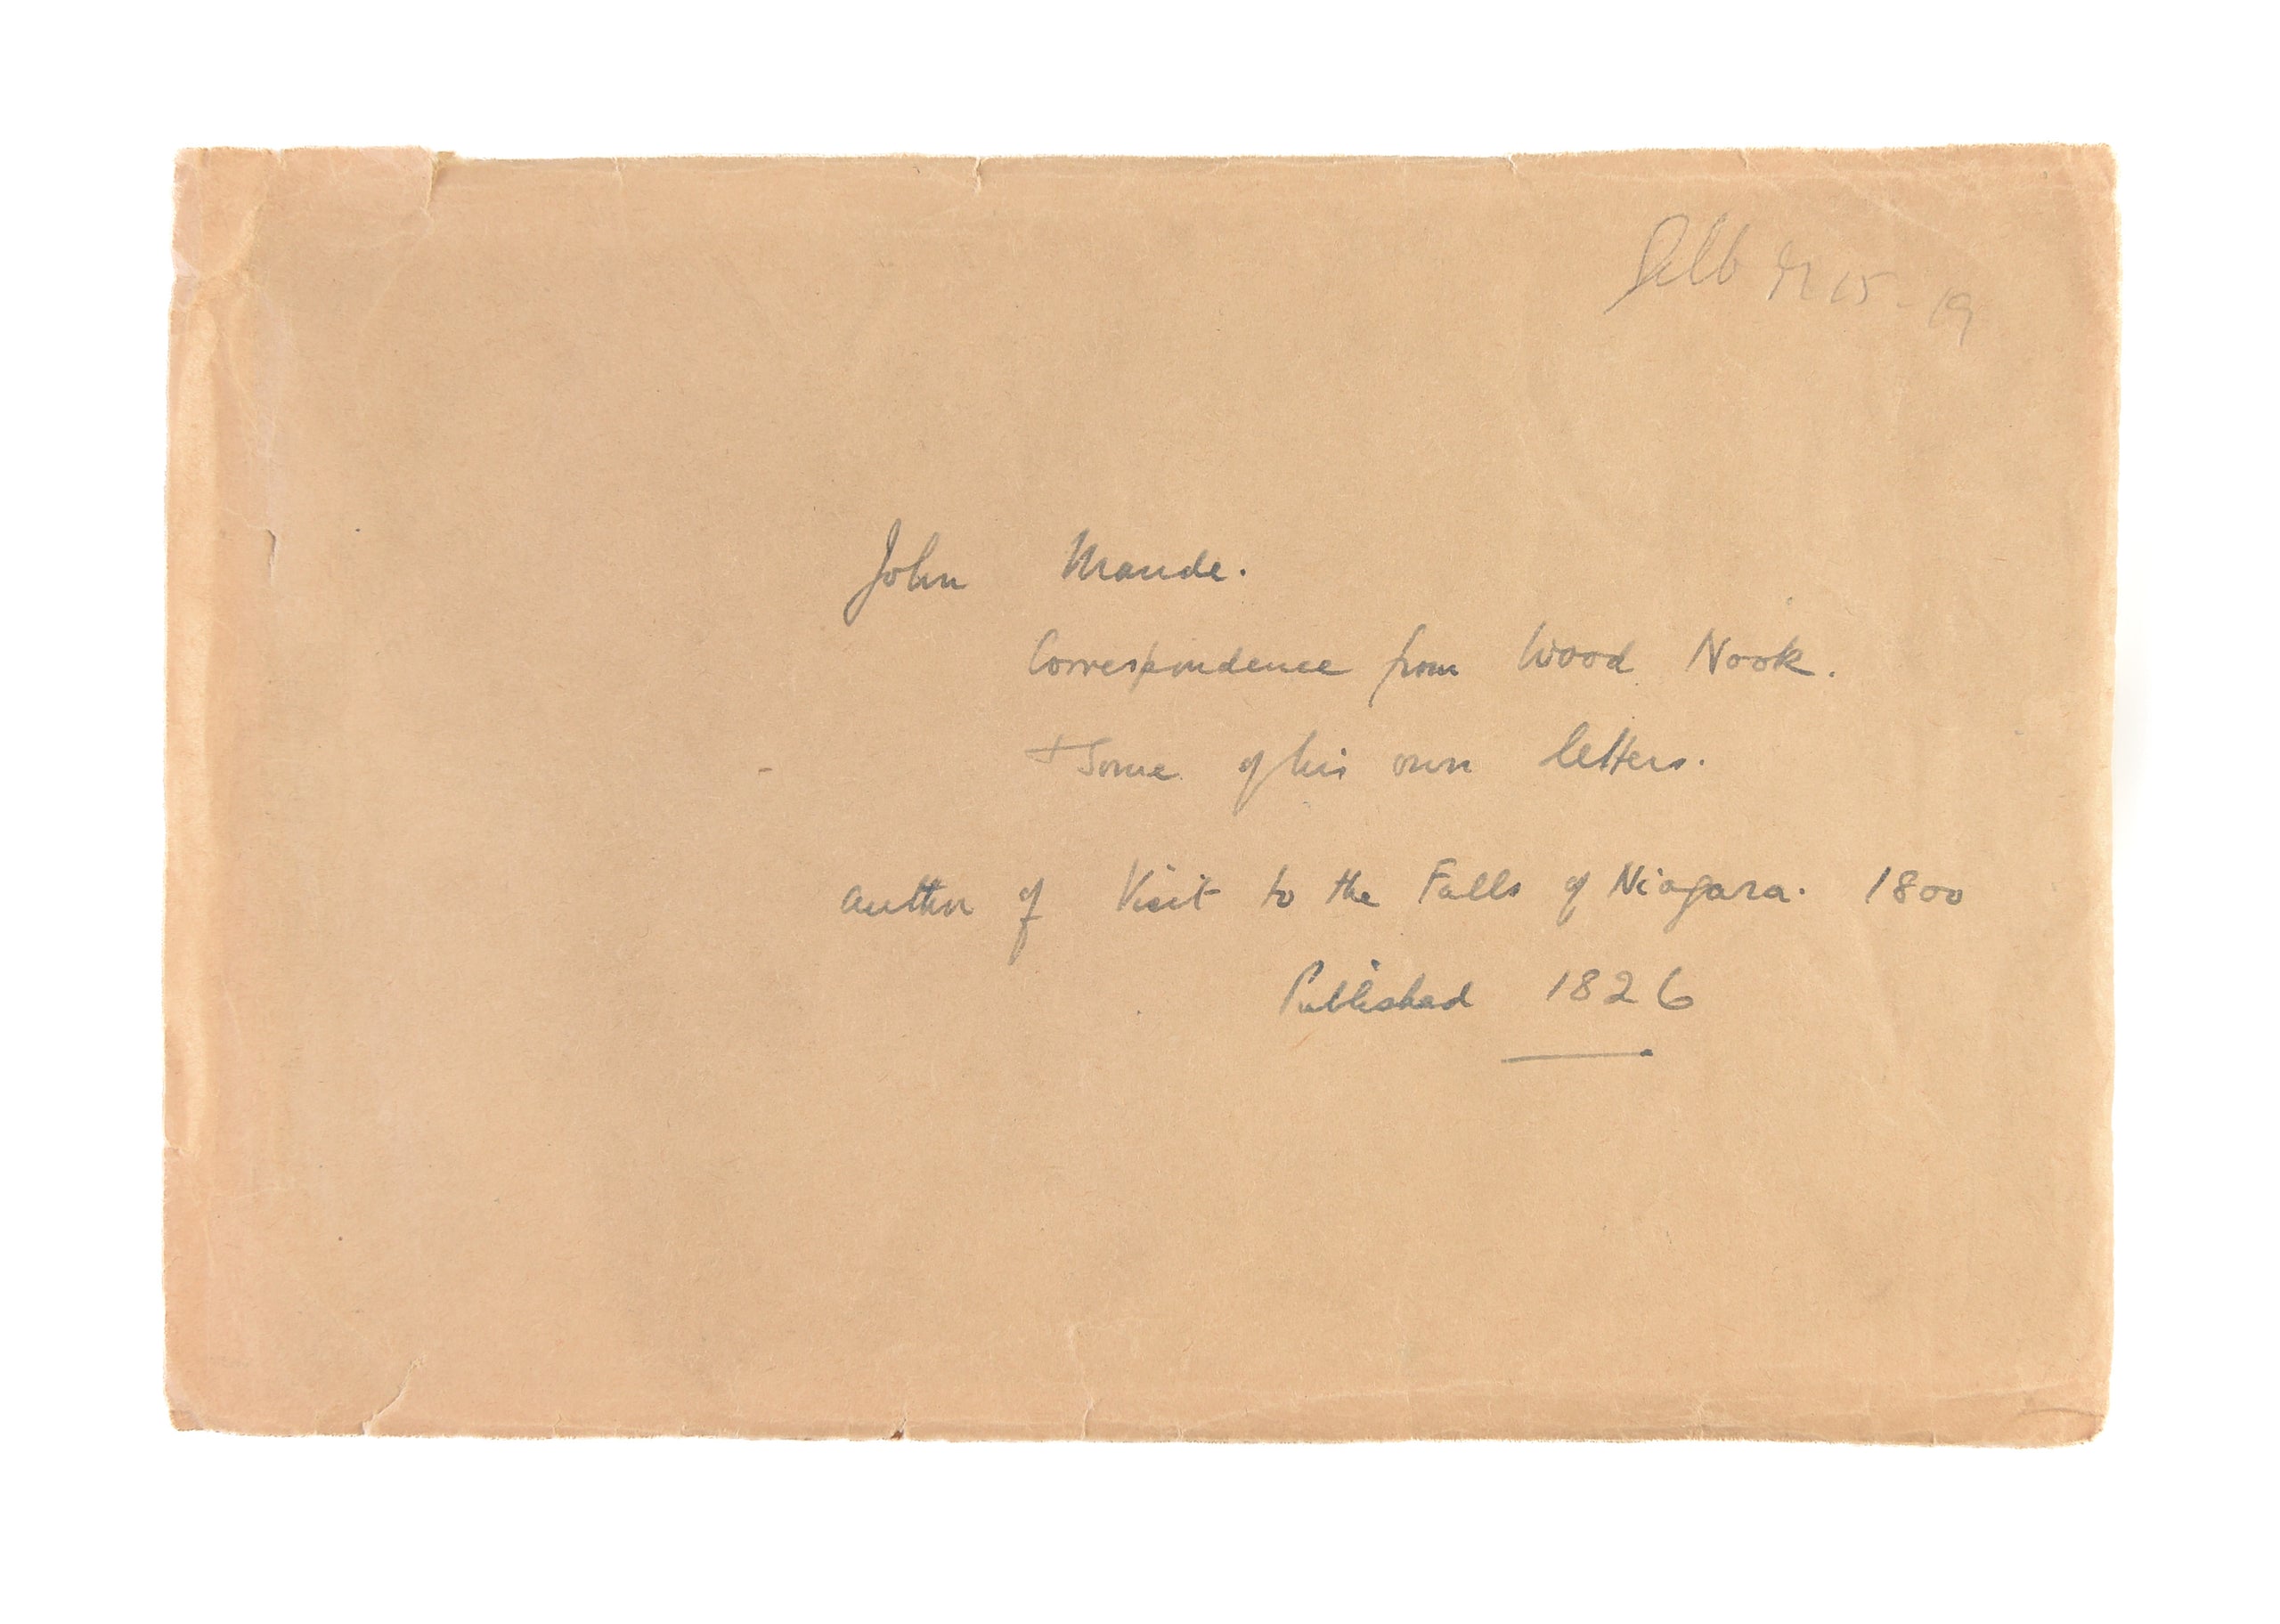 15-19
John Maude.
Correspondence from Wood Nook.
+ Some of his own letters.
author of Visit to the Falls of Niagara. 1800
Published 1826